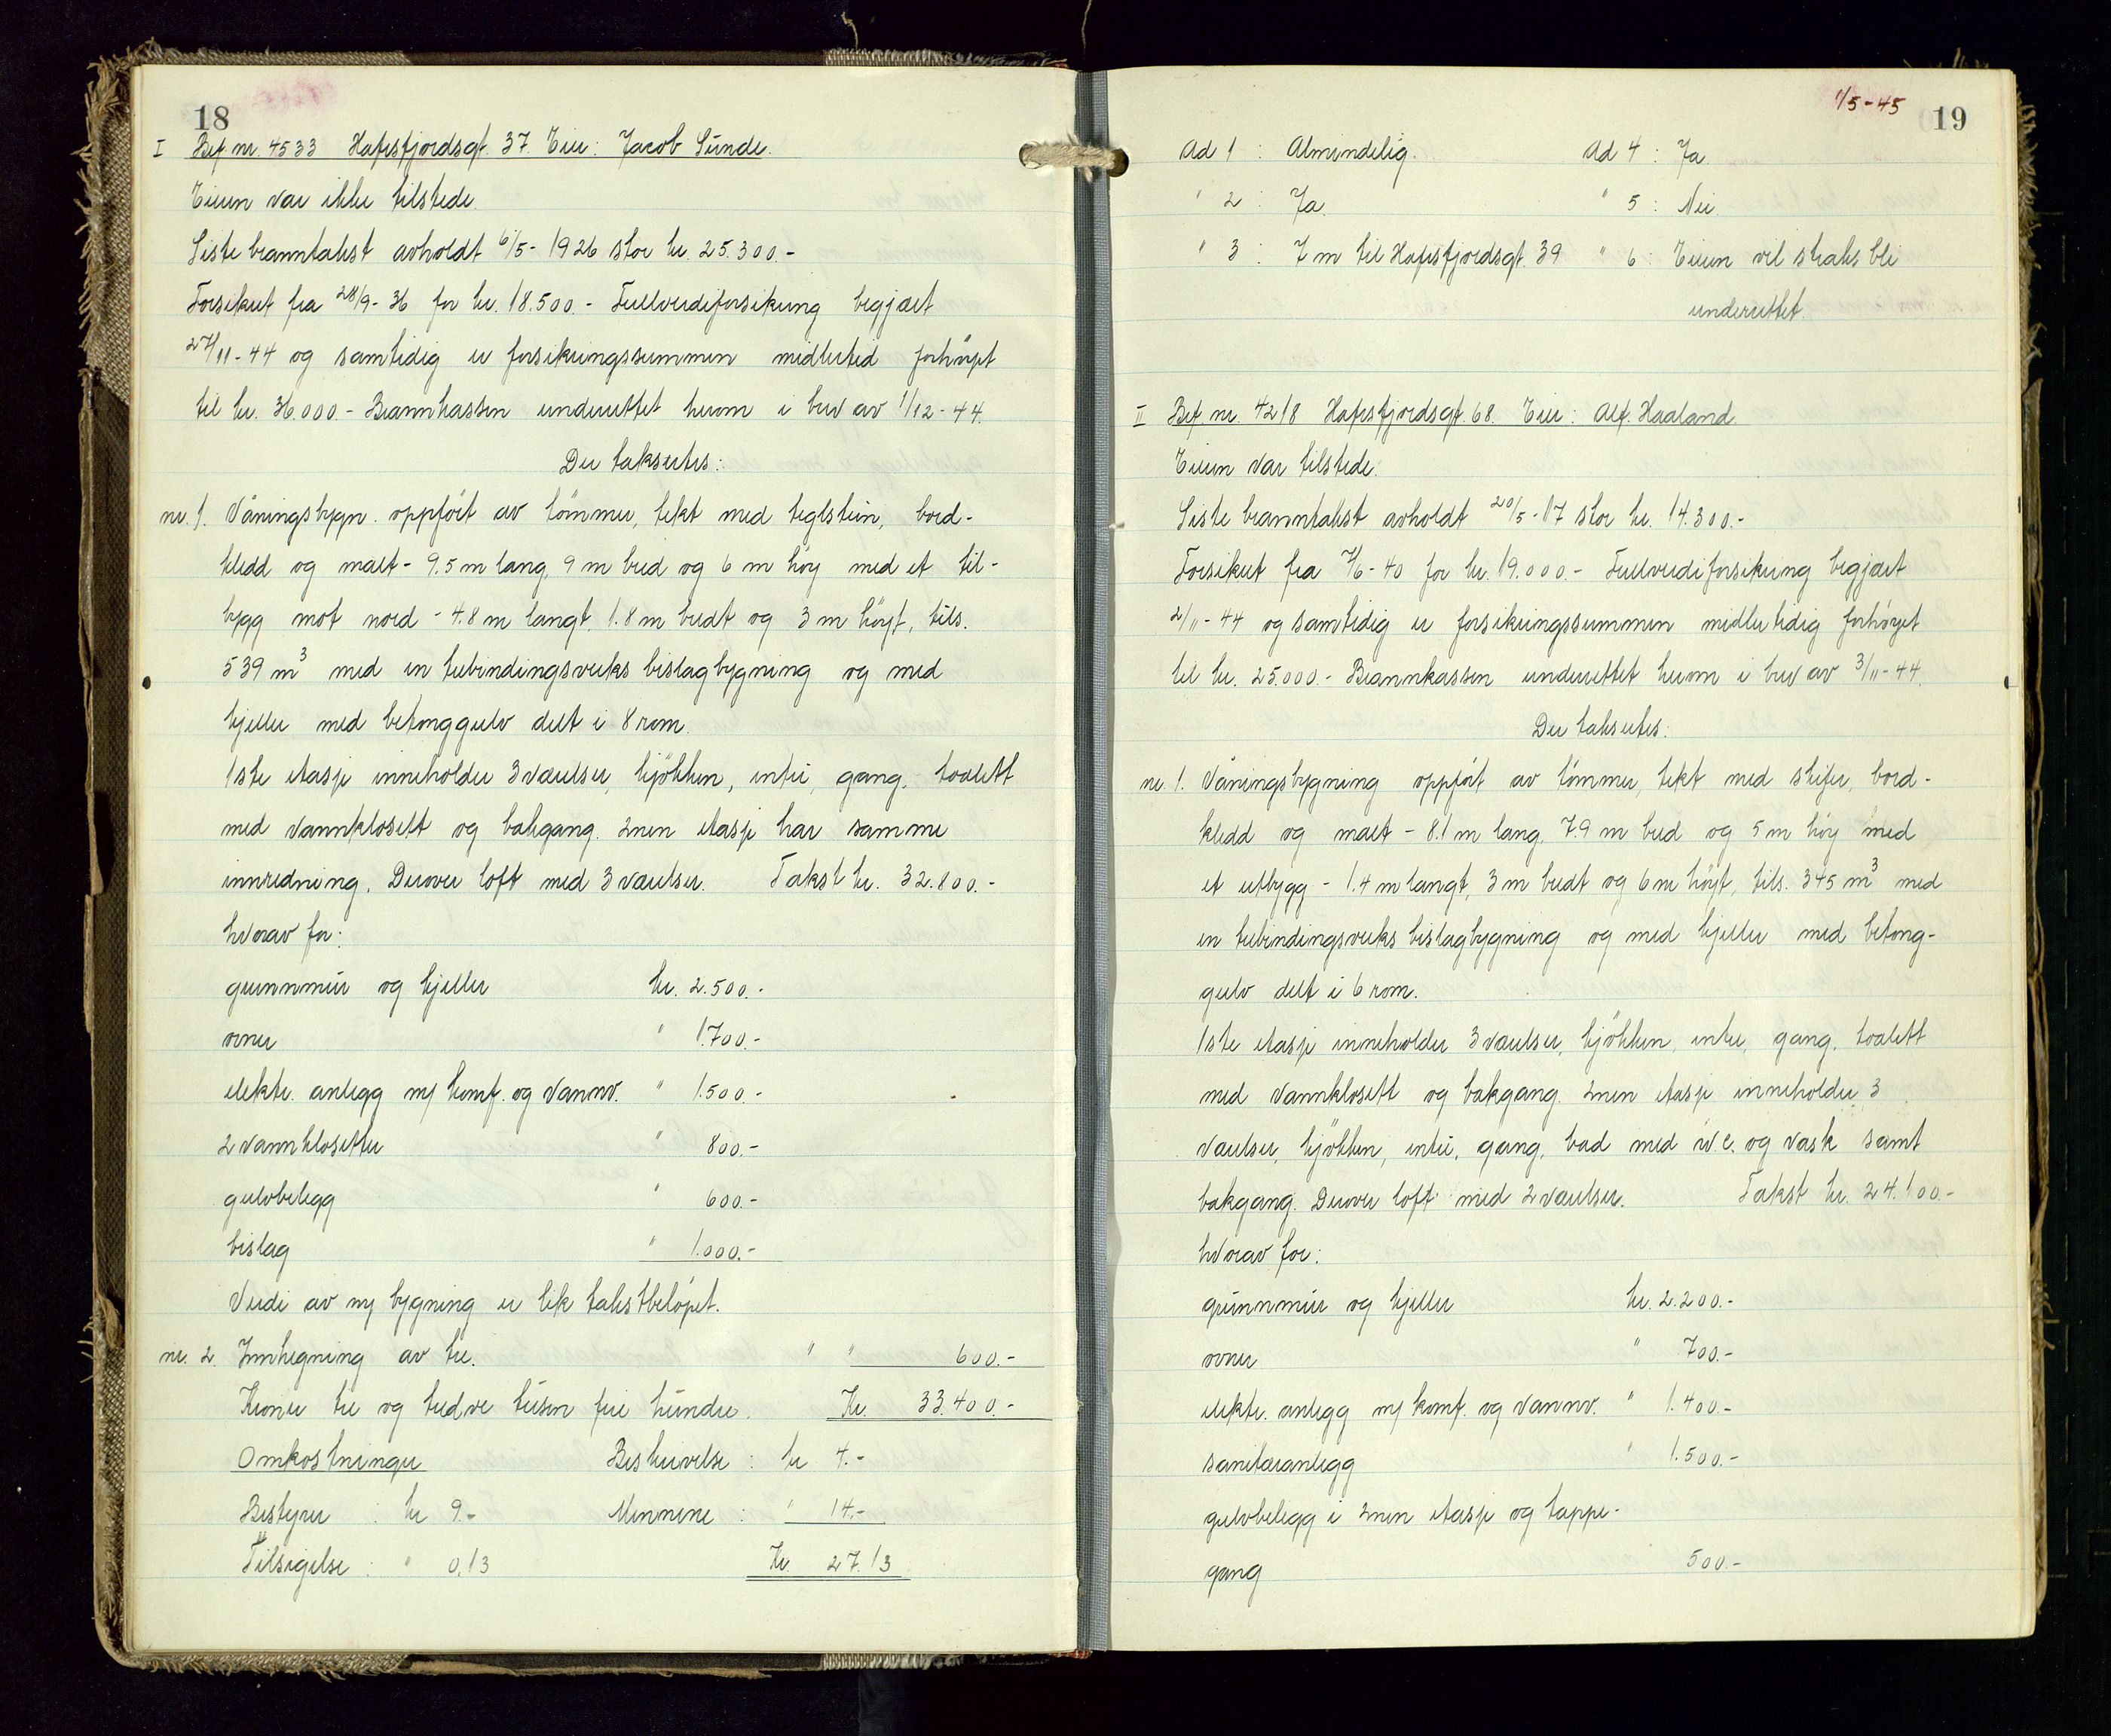 18
I Bef. nr. 4533 Hafrsfjordsgt. 37. Eier: Jacob Sunde.
Eieren var ikke tilstede.
Siste branntakst avholdt 6/5-1926 stor kr. 25.300.-
Forsikret fra 28/9-36 for kr. 18.500.- Fullverdiforsikring begjært
27/11-44 og samtidig er forsikringssummen midlertid forhøyet
til kr. 36.000.- Brannkassen underrettet herom i brev av 1/12-44.
Der taksertes:
nr. 1. Våningsbygn. oppført av tømmer, tekt med teglstein, bord-
kledd og malt - 9.5 m lang, 9 m bred og 6 m høy med et til-
bygg mot nord - 4.8 m langt, 1.8 m bredt og 3 m høyt, tils.
539 m³ med en trebindingsverks bislagbygning og med
kjeller med betonggulv delt i 8 rom.
1ste etasje inneholder 3 værelser, kjøkken, entré, gang, toalett
med vannklosett og bakgang. 2nen etasje har samme
innredning. Derover loft med 3 værelser. Takst kr. 32.800.-
hvorav for:
grunnmur og kjeller kr. 2.500.-
ovner " 1.700.-
elektr. anlegg m/ komf. og vannv. " 1.500.-
2 vannklosetter " 800.-
gulvbelegg " 600.-
bislag " 1.000.-
Verdi av ny bygning er lik takstbeløpet.
nr. 2. Innhegning av tre. " " 600.-
Kroner tre og tredve tusen fire hundre. Kr. 33.400.-
Omkostninger Beskrivelse : kr 4.-
Bestyrer : kr 9.- Mennene : " 14.-
Tilsigelse : " 0,13 Kr. 27.13
1/5-45
19
Ad 1 : Almindelig. Ad 4 : Ja
" 2 : Ja. " 5 : Nei
" 3 : 7 m til Hafrsfjordsgt. 39 " 6 : Eieren vil straks bli
underrettet.
II Bef. nr. 4218 Hafrsfjordsgt. 68. Eier: Alf. Haaland.
Eieren var tilstede.
Siste branntakst avholdt 20/5-17 stor kr. 14.300.-
Forsikret fra 7/6-40 for kr. 19.000.- Fullverdiforsikring begjært
2/11-44 og samtidig er forsikringssummen midlertidig forhøyet
til kr. 25.000.- Brannkassen underrettet herom i brev av 3/11-44.
Der taksertes:
nr. 1. Våningsbygning oppført av tømmer, tekt med skifer, bord-
kledd og malt - 8.1 m lang, 7.9 m bred og 5 m høy med
et utbygg - 1.4 m langt, 3 m bredt og 6 m høyt, tils. 345 m³ med
en trebindingsverks bislagbygning og med kjeller med betong-
gulv delt i 6 rom.
1ste etasje inneholder 3 værelser, kjøkken, entre, gang, toalett
med vannklosett og bakgang. 2nen etasje inneholder 3
værelser, kjøkken, entré, gang, bad med w.c. og vask samt
bakgang. Derover loft med 2 værelser. Takst kr. 24.100.-
hvorav for:
grunnmur og kjeller kr. 2.200.-
ovner " 700.-
elektr. anlegg m/ komf. og vannv. " 1.400.-
sanitæranlegg " 1.500.-
gulvbelegg i 2nen etasje og trappe-
gang 500.-